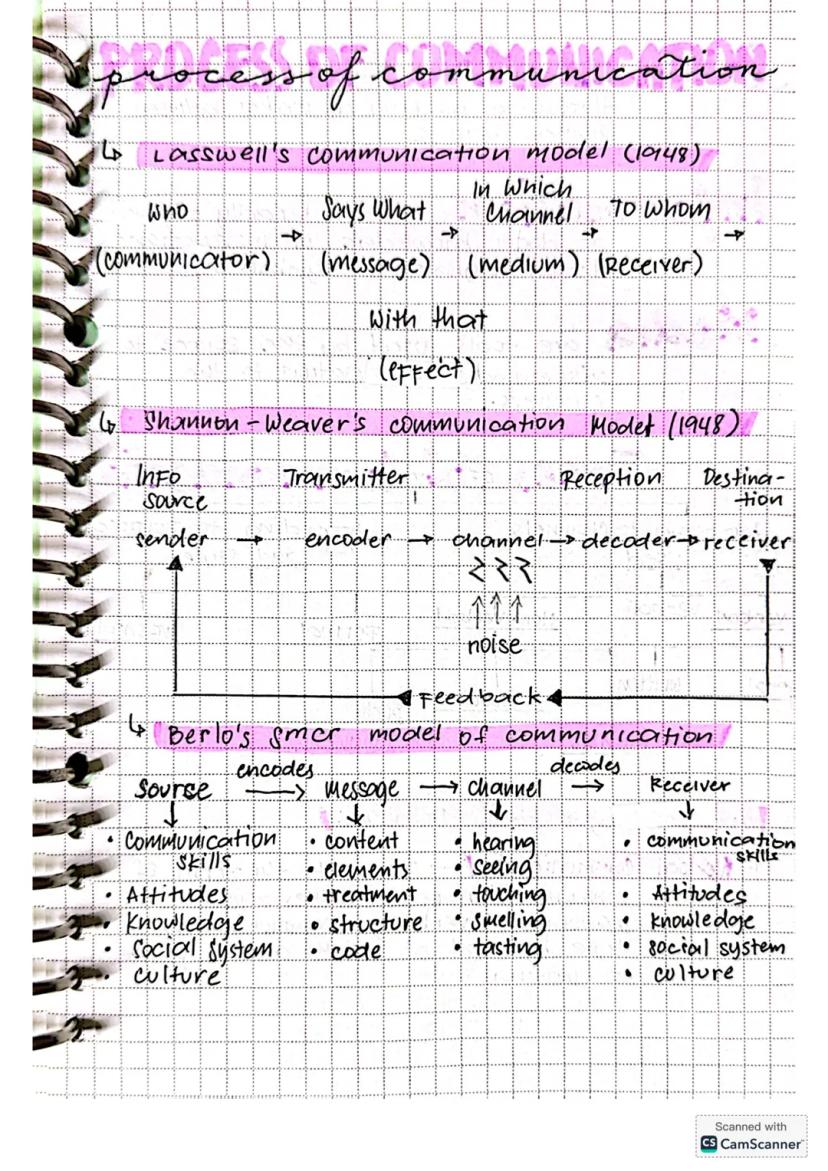 PROCESS OF COMMUNICATION
process of communication
↳ Lasswell's communication model (1948)
Who → Says What → In Which Channel → To Whom →
(communicator) (message) (medium) (Receiver)
With that
(effect)
↳ Shannon-Weaver's communication Model (1948)
Info source Transmitter Reception Destina-tion
sender → encoder → channel → decoder → receiver
noise
Feedback
↳ Berlo's smcr model of communication
encodes decodes
Source → message → channel → Receiver
• Communication skills • content • hearing • communication skills
• elements • seeing
• Attitudes • treatment • touching • Attitudes
• Knowledge • structure • smelling • knowledge
• Social System • code • tasting • social system
• culture • culture
Scanned with
CS CamScanner